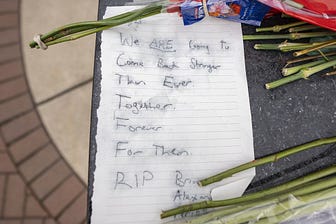 We ARE Going to
Come Back Stronger
Then Ever
Together.
Forever
For Them.
RIP Bri
Alexan